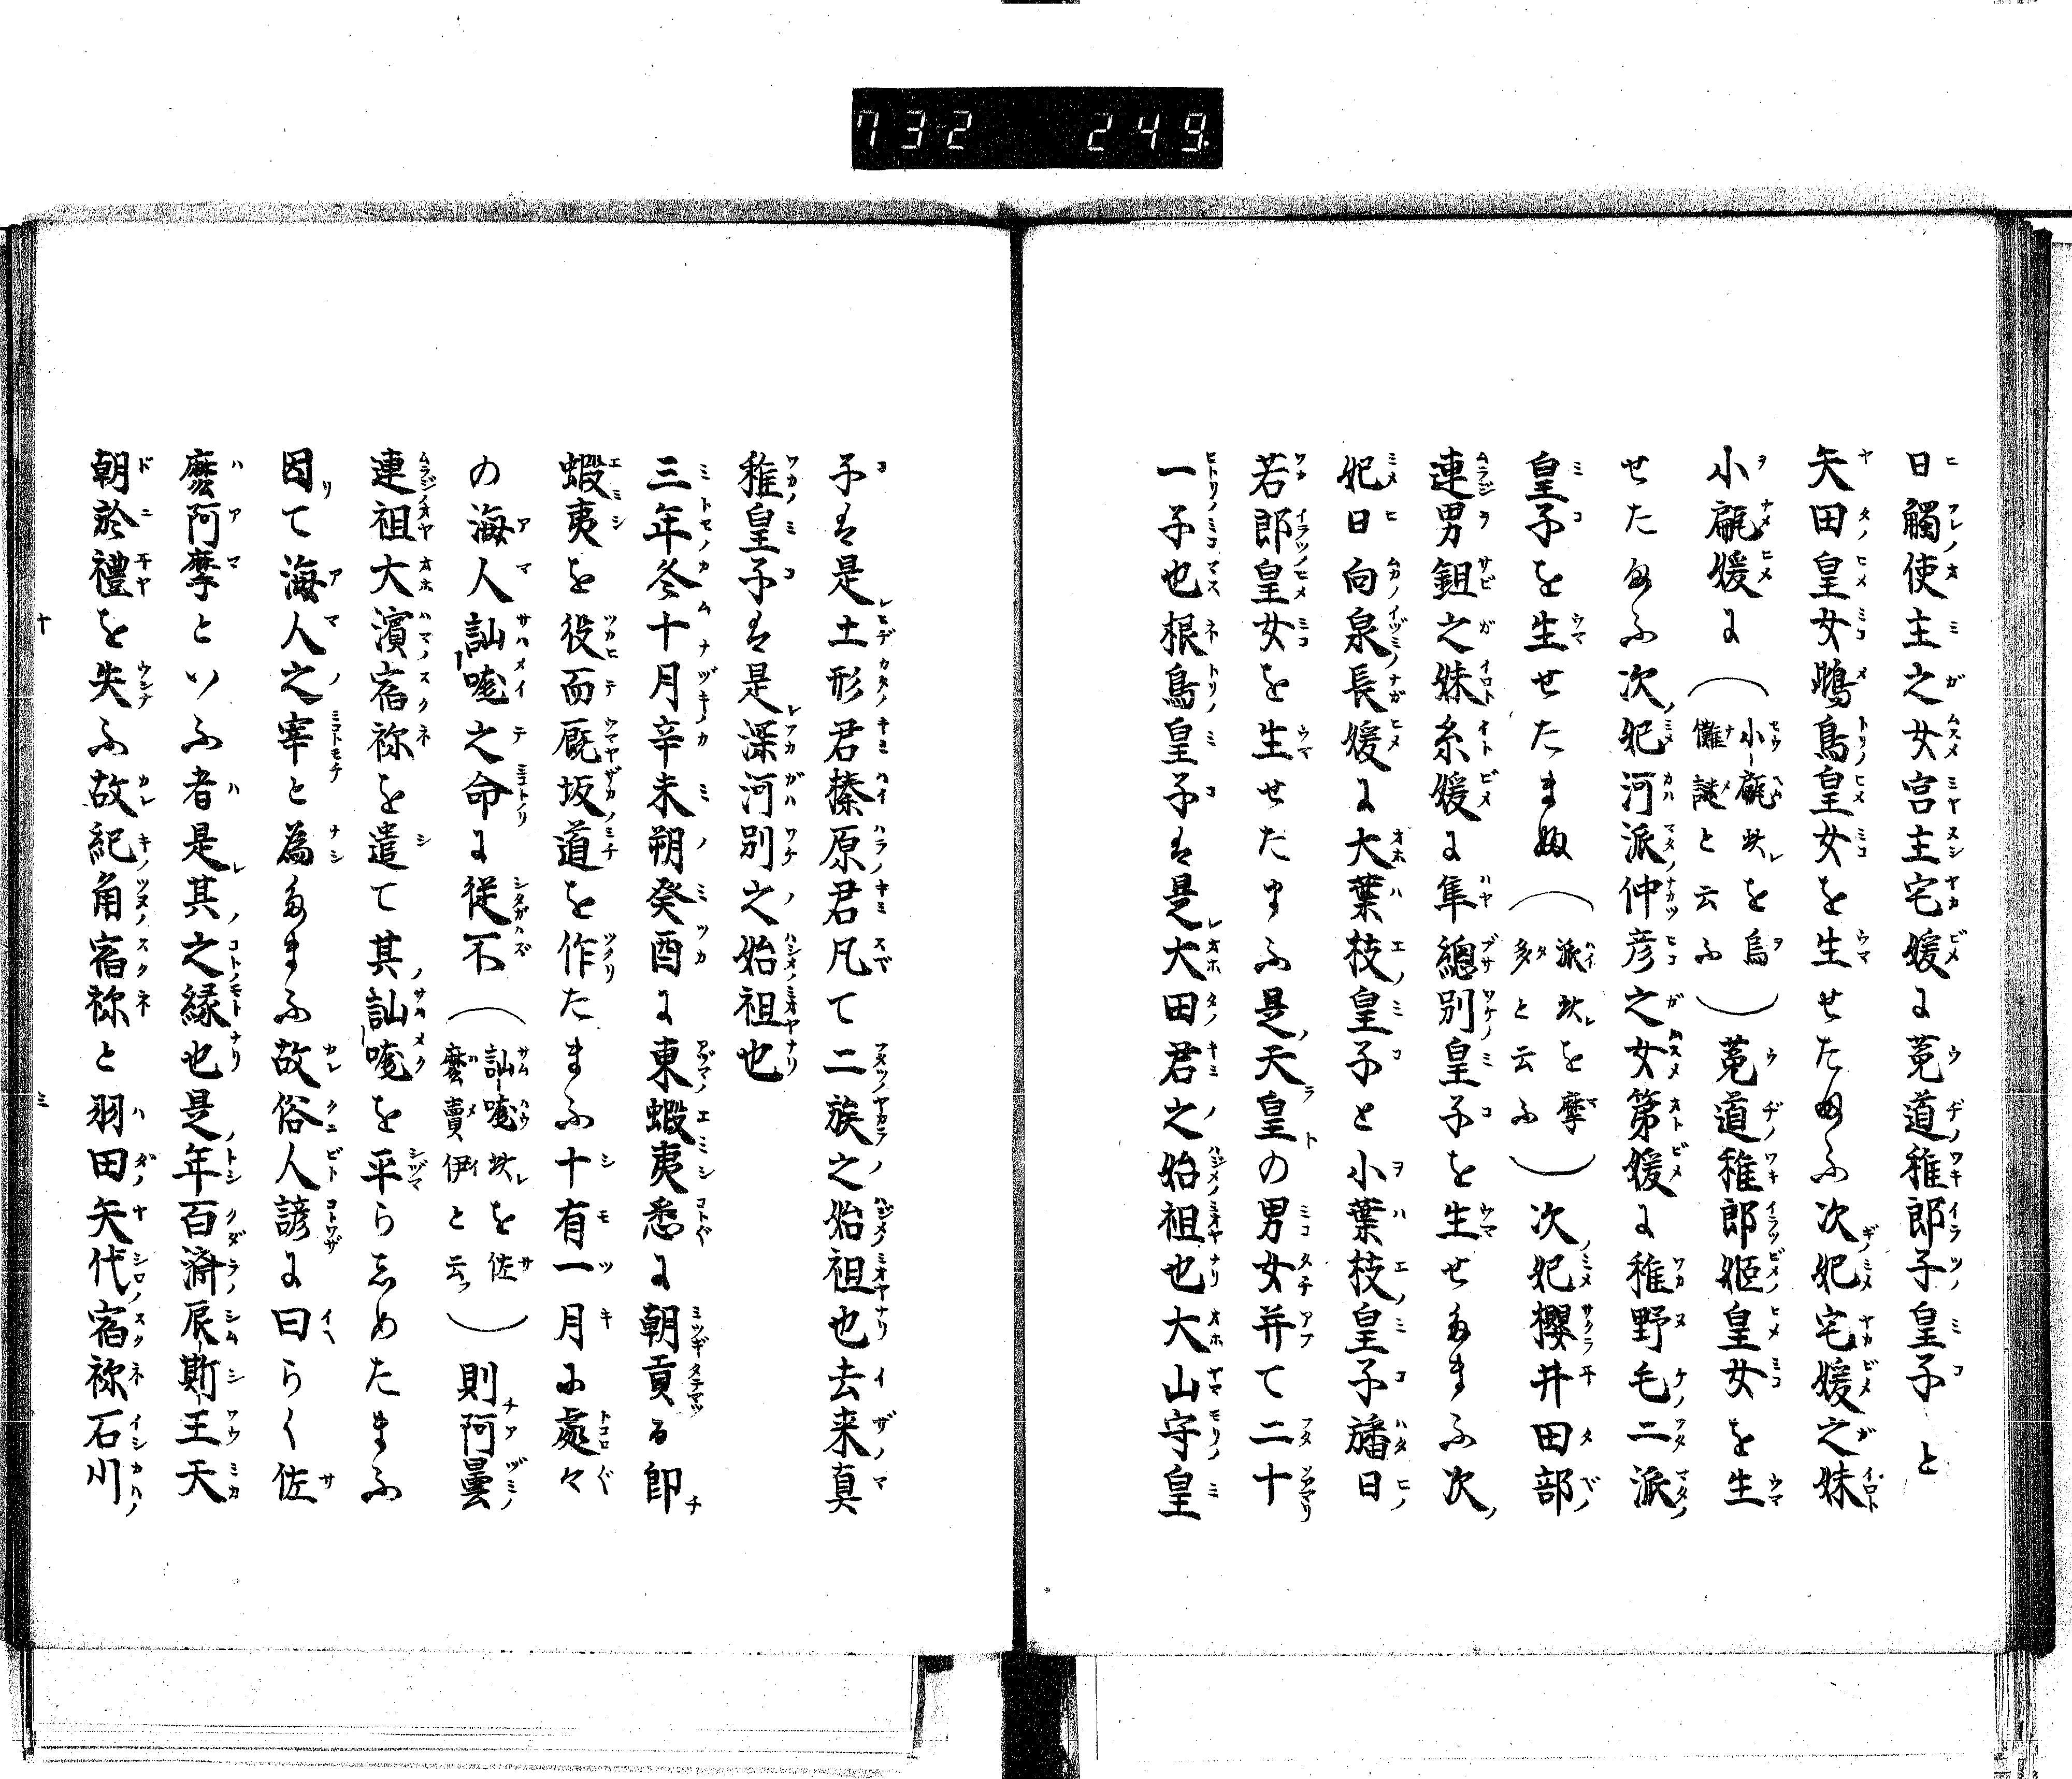 732 249
日觸使主之女宮主宅媛に菟道稚郎子皇子と
矢田皇女鴟鳥皇女を生せたまふ次妃宅媛之妹
小甂媛に（小甂此を烏儺謎と云ふ）菟道稚郎姫皇女を生
せたまふ次妃河派仲彦之女第媛に稚野毛二派
皇子を生せたまぬ（派此を摩多と云ふ）次妃櫻井田部
連男鉏之妹糸媛に隼總別皇子を生せたまふ次
妃日向泉長媛に大葉枝皇子と小葉枝皇子旛日
若郎皇女を生せたまふ是天皇の男女并て二十
一子也根鳥皇子は是大田君之始祖也大山守皇
子は是土形君榛原君凡て二族之始祖也去来真
稚皇子は是深河別之始祖也
三年冬十月辛未朔癸酉に東蝦夷悉に朝貢る即
蝦夷を役而厩坂道を作たまふ十有一月に處々
の海人訕哤之命に従不（訕哤此を佐麼賣伊と云フ）則阿曇
連祖大濱宿祢を遣て其訕哤を平らしめたまふ
因て海人之宰と為たまふ故俗人諺に曰らく佐
麼阿摩といふ者是其之縁也是年百済辰斯王天
朝於禮を失ふ故紀角宿祢と羽田矢代宿祢石川
十三